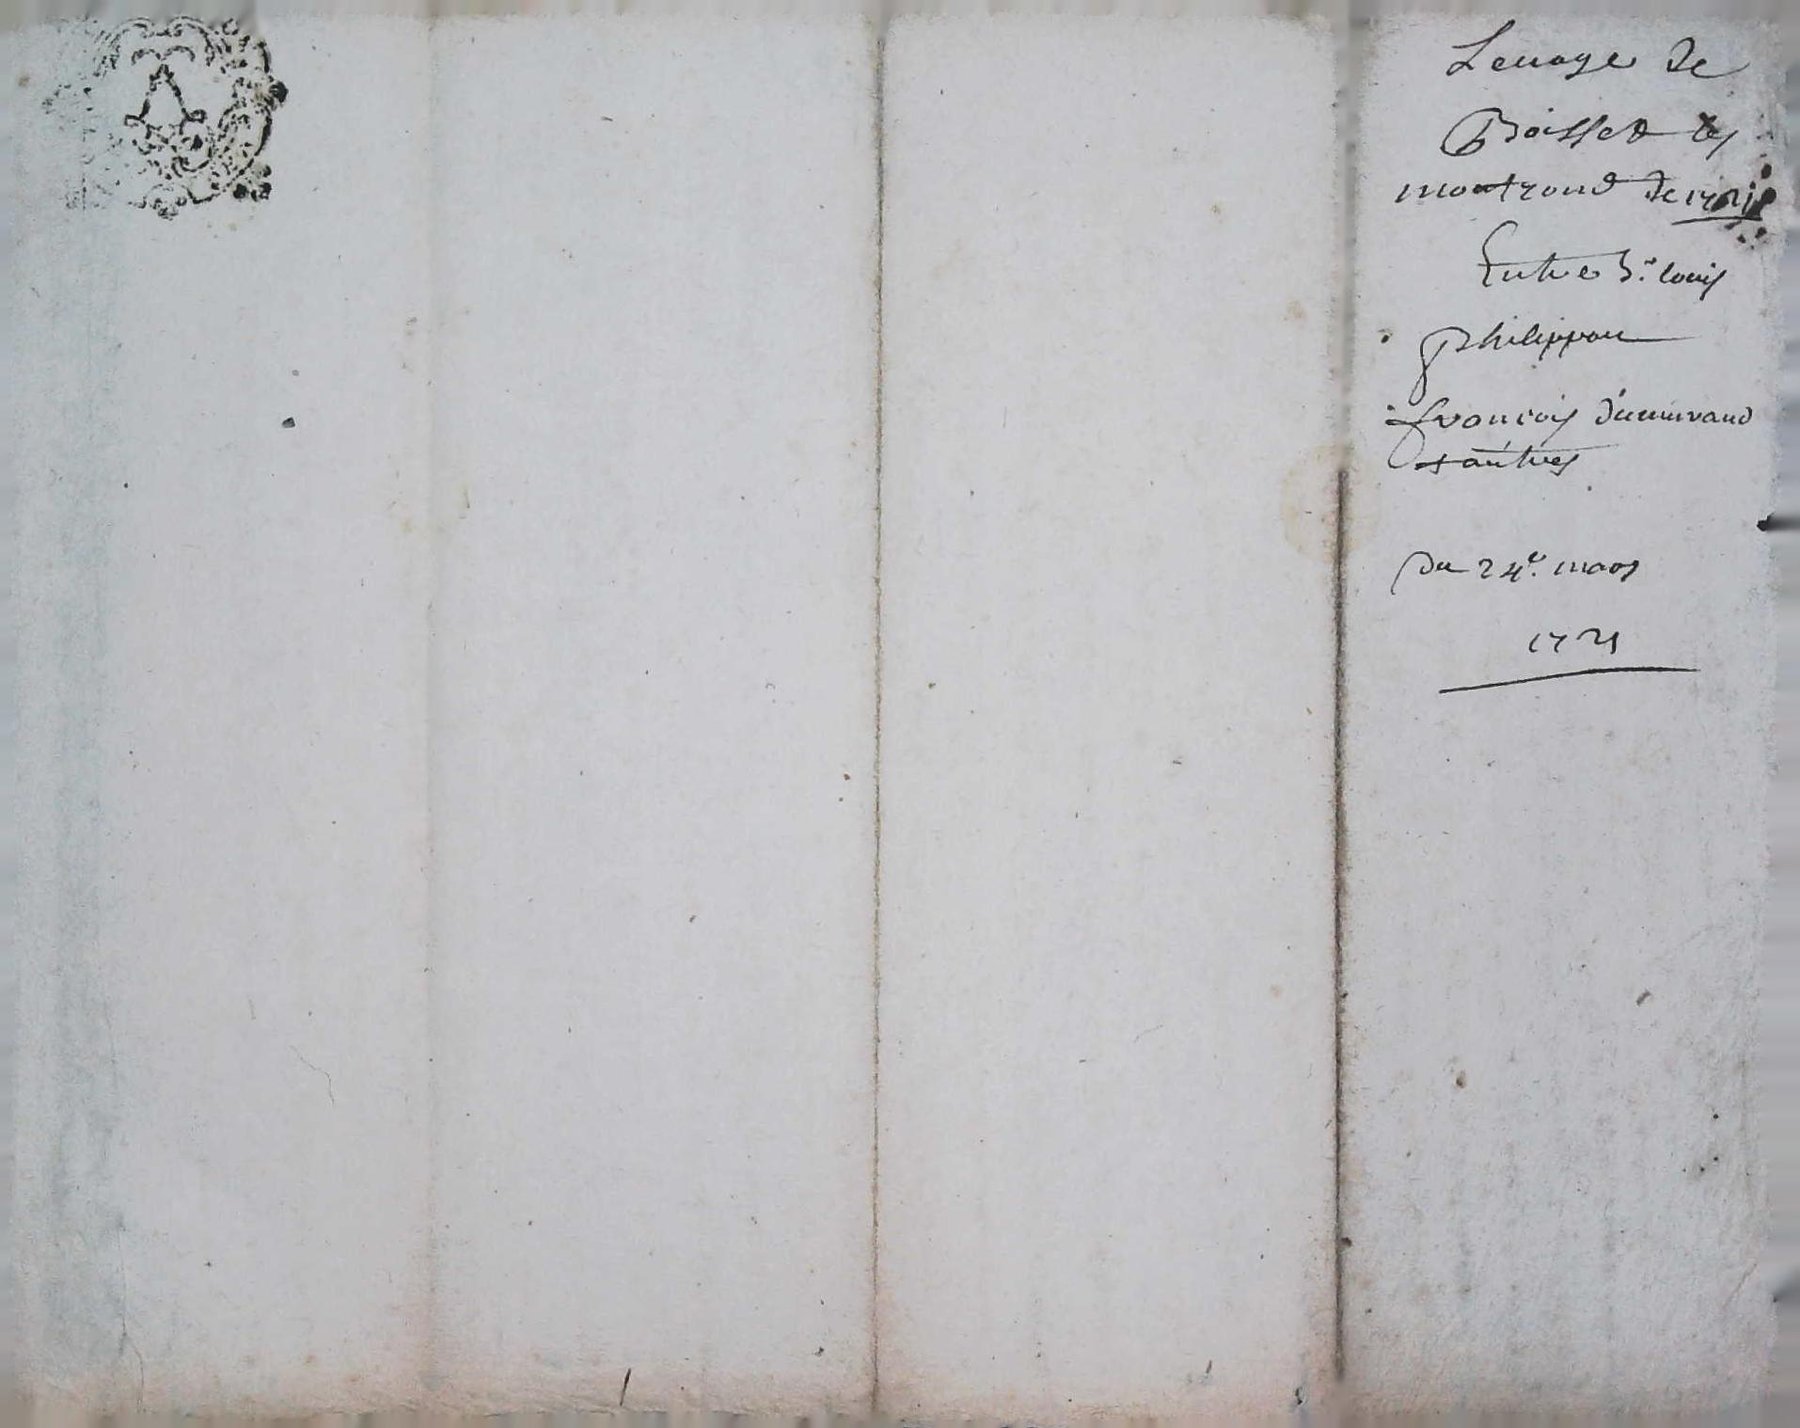 Leuage de
Boisset les
montrond de 1721
Entre Sr. louis
Philippon
francois dumirand
& autres
du 24e. mars
1721